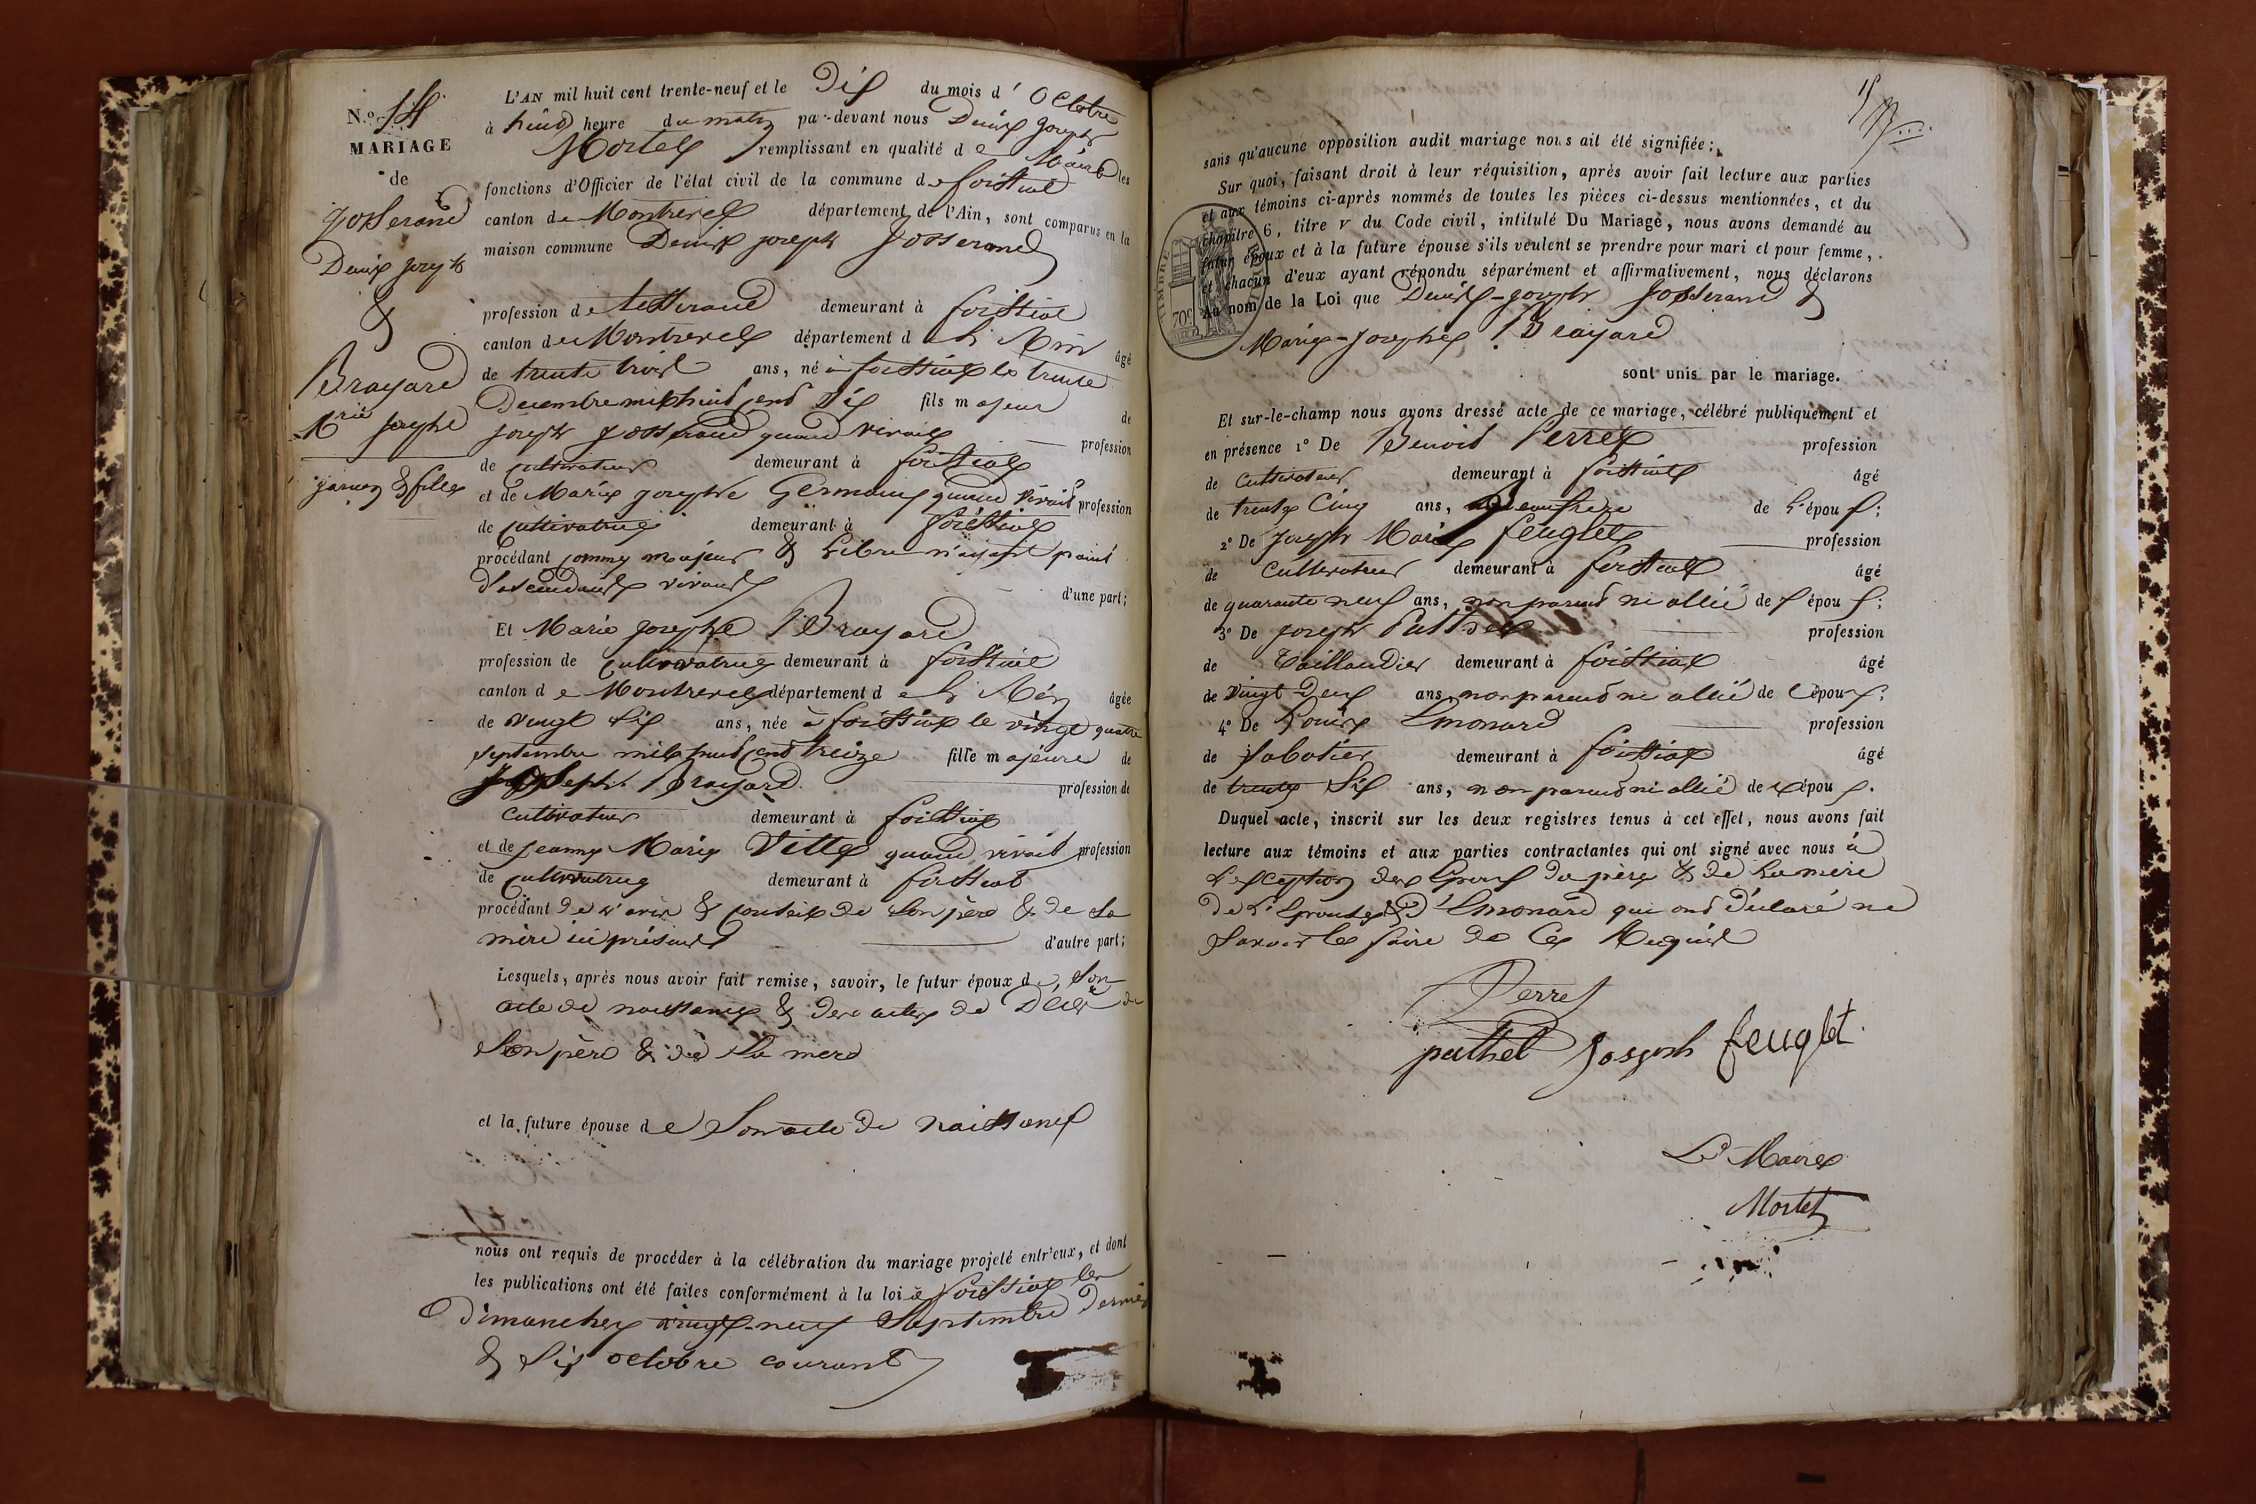 N.o 14
MARIAGE
de
Josserand
Denis Joseph
&
Brayard
Mrie Josephe
garçon & fille
L'AN mil huit cent trente-neuf et le Dix du mois d'Octobre
à huit heure du matin par-devant nous Denis Joseph
Mortel remplissant en qualité de Maire les
fonctions d'Officier de l'état civil de la commune de foissiat
canton de Montrevel département de l'Ain, sont comparus en la
maison commune Denis joseph Josserand
profession de tisserand demeurant à foissiat
canton de Montrevel département de l'Ain âgé
de trente trois ans, né à foissiat le trente
Decembre mil huit cent dix fils majeur de
joseph josserand quand vivait profession
de cultivateur demeurant à foissiat
et de Marie josephe Germain quand vivait profession
de cultivatrice demeurant à foissiat
procédant comme majeur & Libre n'aiyant point
d'ascendants vivants d'une part;
Et Marie josephe Brayard
profession de cultivatrice demeurant à foissiat
canton de Montrevel département de l'Ain âgée
de vingt six ans, née à foissiat le vingt quatre
septembre mil huit cent treize fille majeure de
Joseph Brayard profession de
cultivateur demeurant à foissiat
et de jeanne Marie Vitte quand vivait profession
de cultivatrice demeurant à foissiat
procédant de l'avis & conseil de Son père & de Sa
mère ici présents d'autre part;
Lesquels, après nous avoir fait remise, savoir, le futur époux de Son
acte de naissance & des actes de Décès de
Son père & de Sa mere
et la future épouse de Son acte de naissance
nous ont requis de procéder à la célébration du mariage projeté entr'eux, et dont
les publications ont été faites conformément à la loi à foissiat les
Dimanches vingt-neuf Septembre dernier
& Six octobre courant
15
sans qu'aucune opposition audit mariage nous ait été signifiée;
Sur quoi, faisant droit à leur réquisition, après avoir fait lecture aux parties
et aux témoins ci-après nommés de toutes les pièces ci-dessus mentionnées, et du
chapitre 6, titre V du Code civil, intitulé Du Mariage, nous avons demandé au
futur époux et à la future épouse s'ils veulent se prendre pour mari et pour femme,
et chacun d'eux ayant répondu séparément et affirmativement, nous déclarons
Au nom de la Loi que Denis-joseph Josserand &
Marie-josephe Brayard
sont unis par le mariage.
TIMBRE
70c
Et sur-le-champ nous avons dressé acte de ce mariage, célébré publiquement et
en présence 1° De Benoit Perret profession
de Cultivateur demeurant à foissiat âgé
de trente Cinq ans, Beaufrere de l'époux;
2° De joseph Marie feuglet profession
de Cultivateur demeurant à foissiat âgé
de quarante neuf ans, non parent ni allié de l'époux;
3° De joseph Puthet profession
de Taillandier demeurant à foissiat âgé
de vingt Deux ans, non parent ni allié de l'époux;
4° De Louis Emonard profession
de Sabotier demeurant à foissiat âgé
de trente Six ans, non parent ni allié de l'époux.
Duquel acte, inscrit sur les deux registres tenus à cet effet, nous avons fait
lecture aux témoins et aux parties contractantes qui ont signé avec nous à
L'exception des Epoux du père & de La mère
de l'Epouse & d'Emonard qui ont déclaré ne
Savoir le faire de Ce Requis
Perret
puthet Joseph feuglet
Le Maire
Mortel